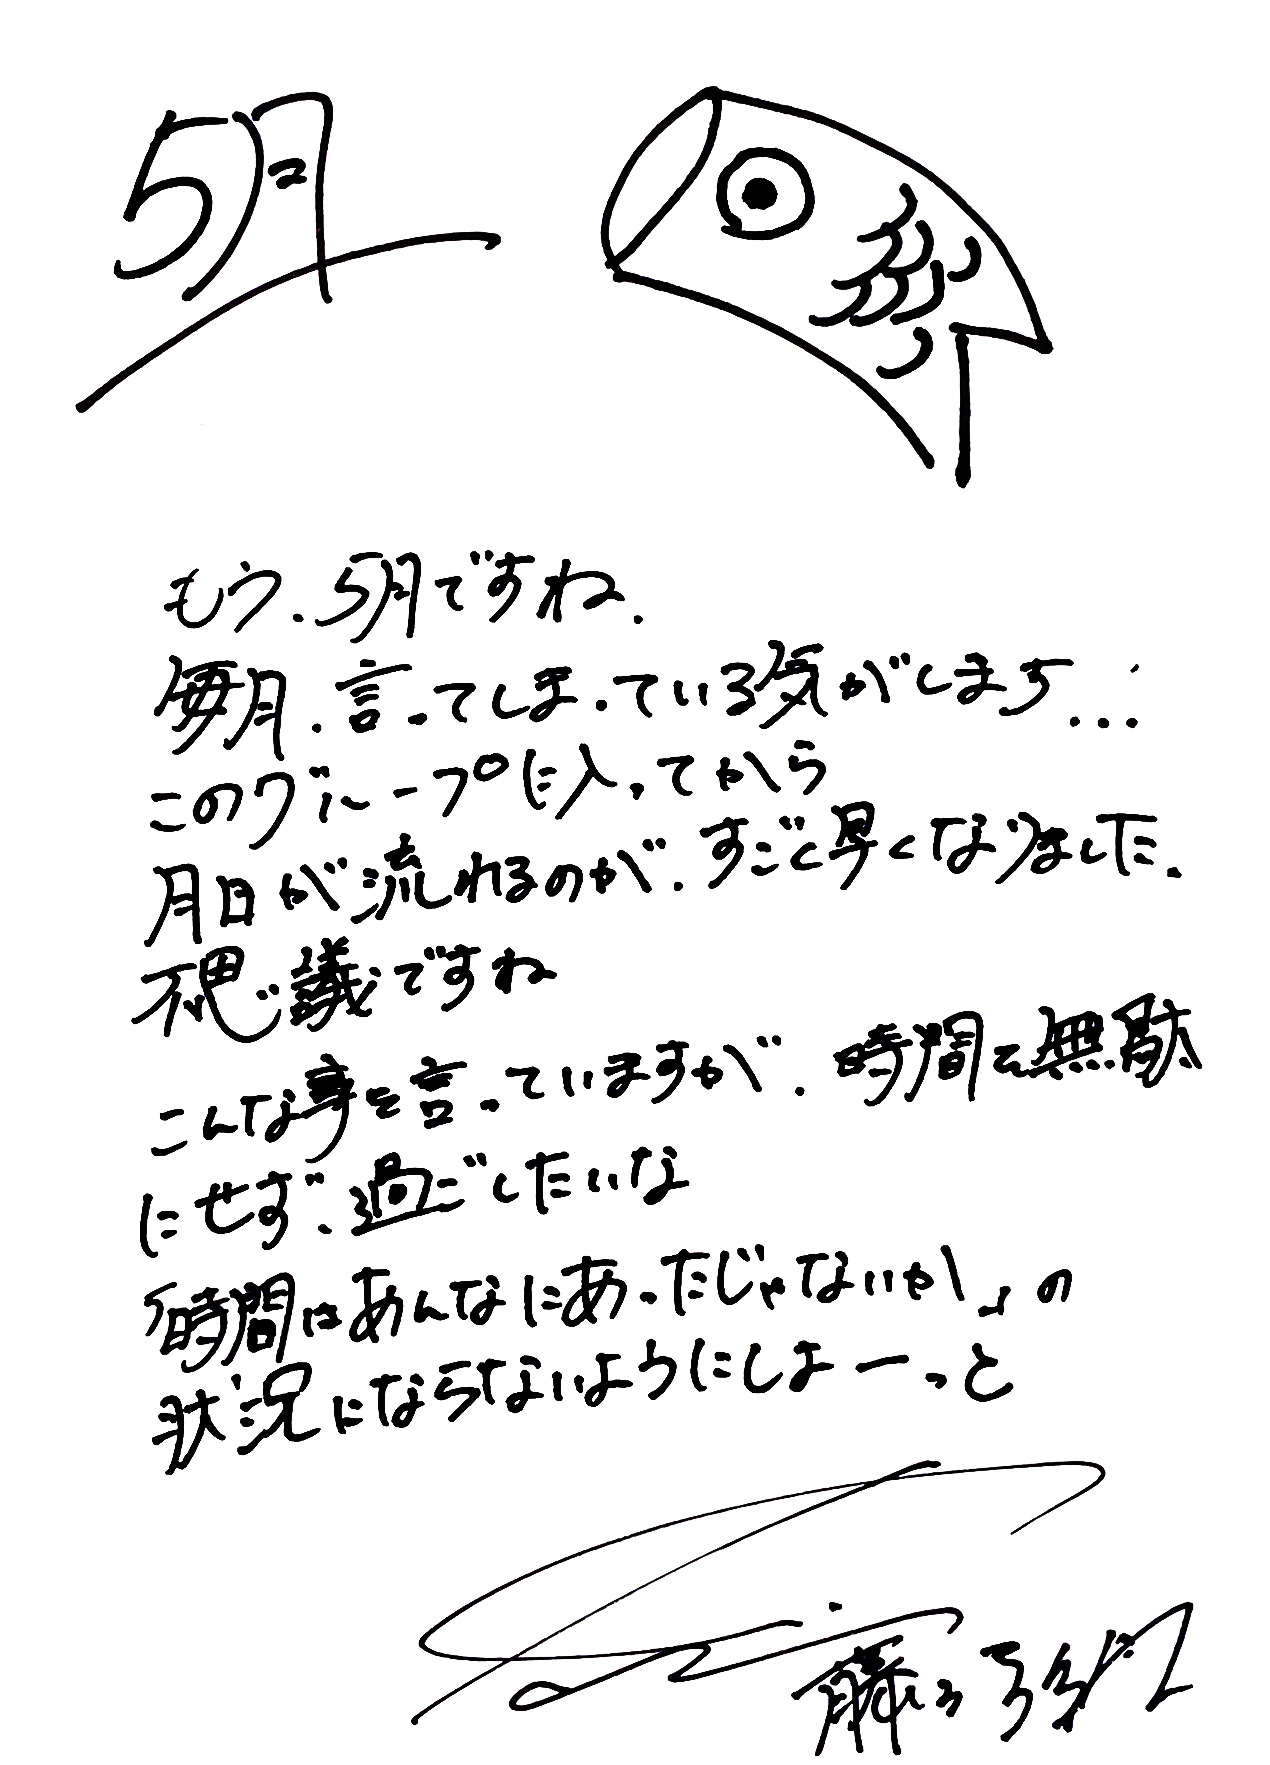 5月
もう、5月ですね.
毎月、言ってしまっている気がします...
このグループに入ってから
月日が流れるのが、すごく早くなりました.
不思議ですね
こんな事を言っていますが、時間を無駄
にせず、過ごしたいな
「時間はあんなにあったじゃないか」の
状況にならないようにしよーっと